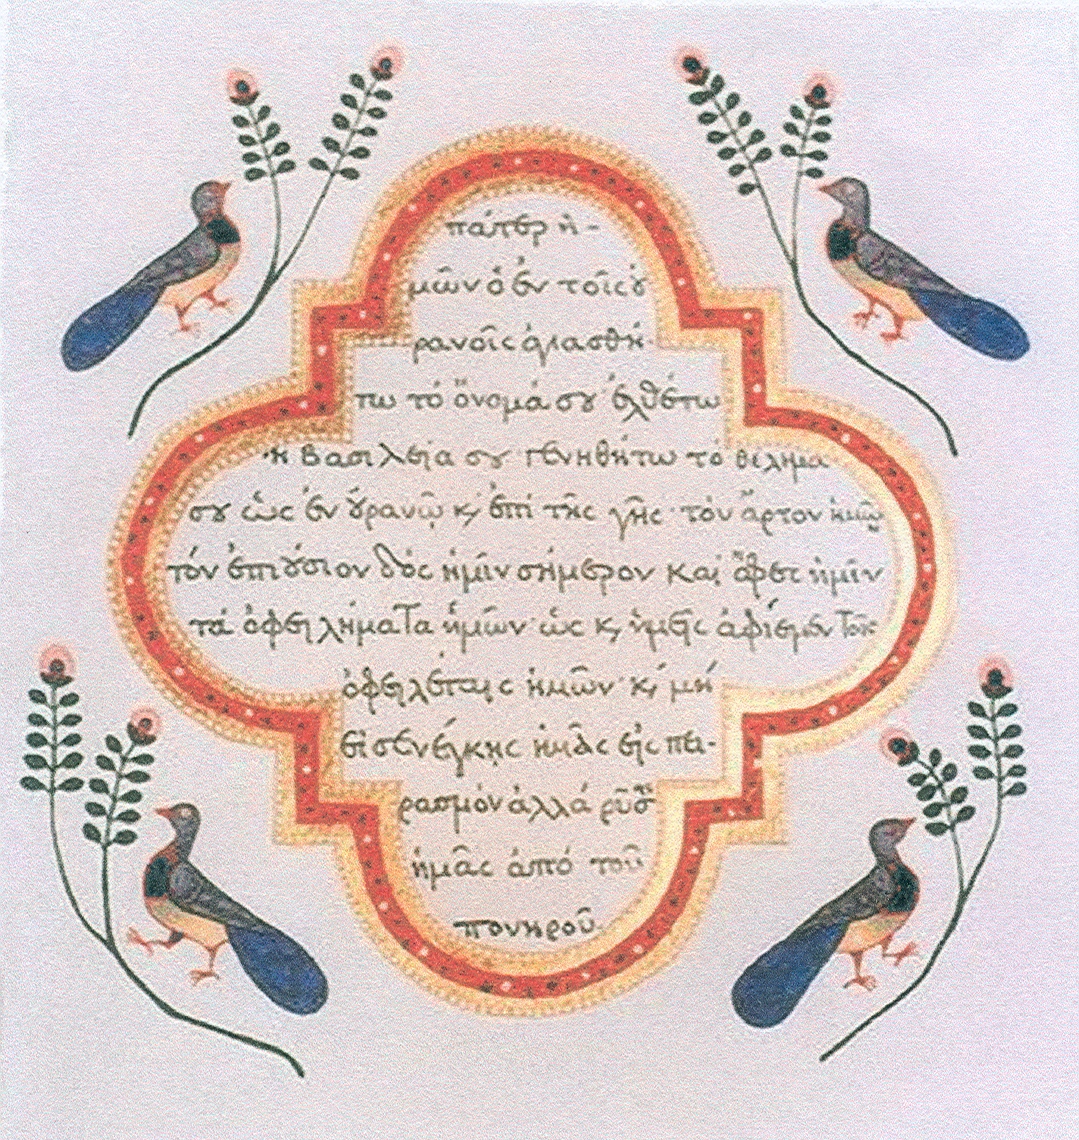 πάτερ ἡ-
μῶν ὁ ἐν τοῖς ȣ̓
ρανοῖς ἁγιασθή-
τω τὸ ὄνομά σȣ· ἐλθέτω
ἡ βασιλεία σȣ γενηθήτω τὸ θέλημα
σȣ ὡς ἐν ȣ̓ρανῷ κ, ἐπὶ τῆς γῆς· τὸν ἄρτον ἡμῶ
τὸν ἐπιȣ́σιον δὸς ἡμῖν σήμερον καὶ ἄφες ἡμῖν
τὰ ὀφειλήματα ἡμῶν· ὡς κ, ἡμεῖς ἀφίεμεν τοῖς
ὀφειλέταις ἡμῶν· κ, μὴ
εἰσενέγκῃς ἡμᾶς εἰς πει-
ρασμὸν ἀλλὰ ῥῦσ
ἡμᾶς ἀπὸ τοῦ
πονηροῦ